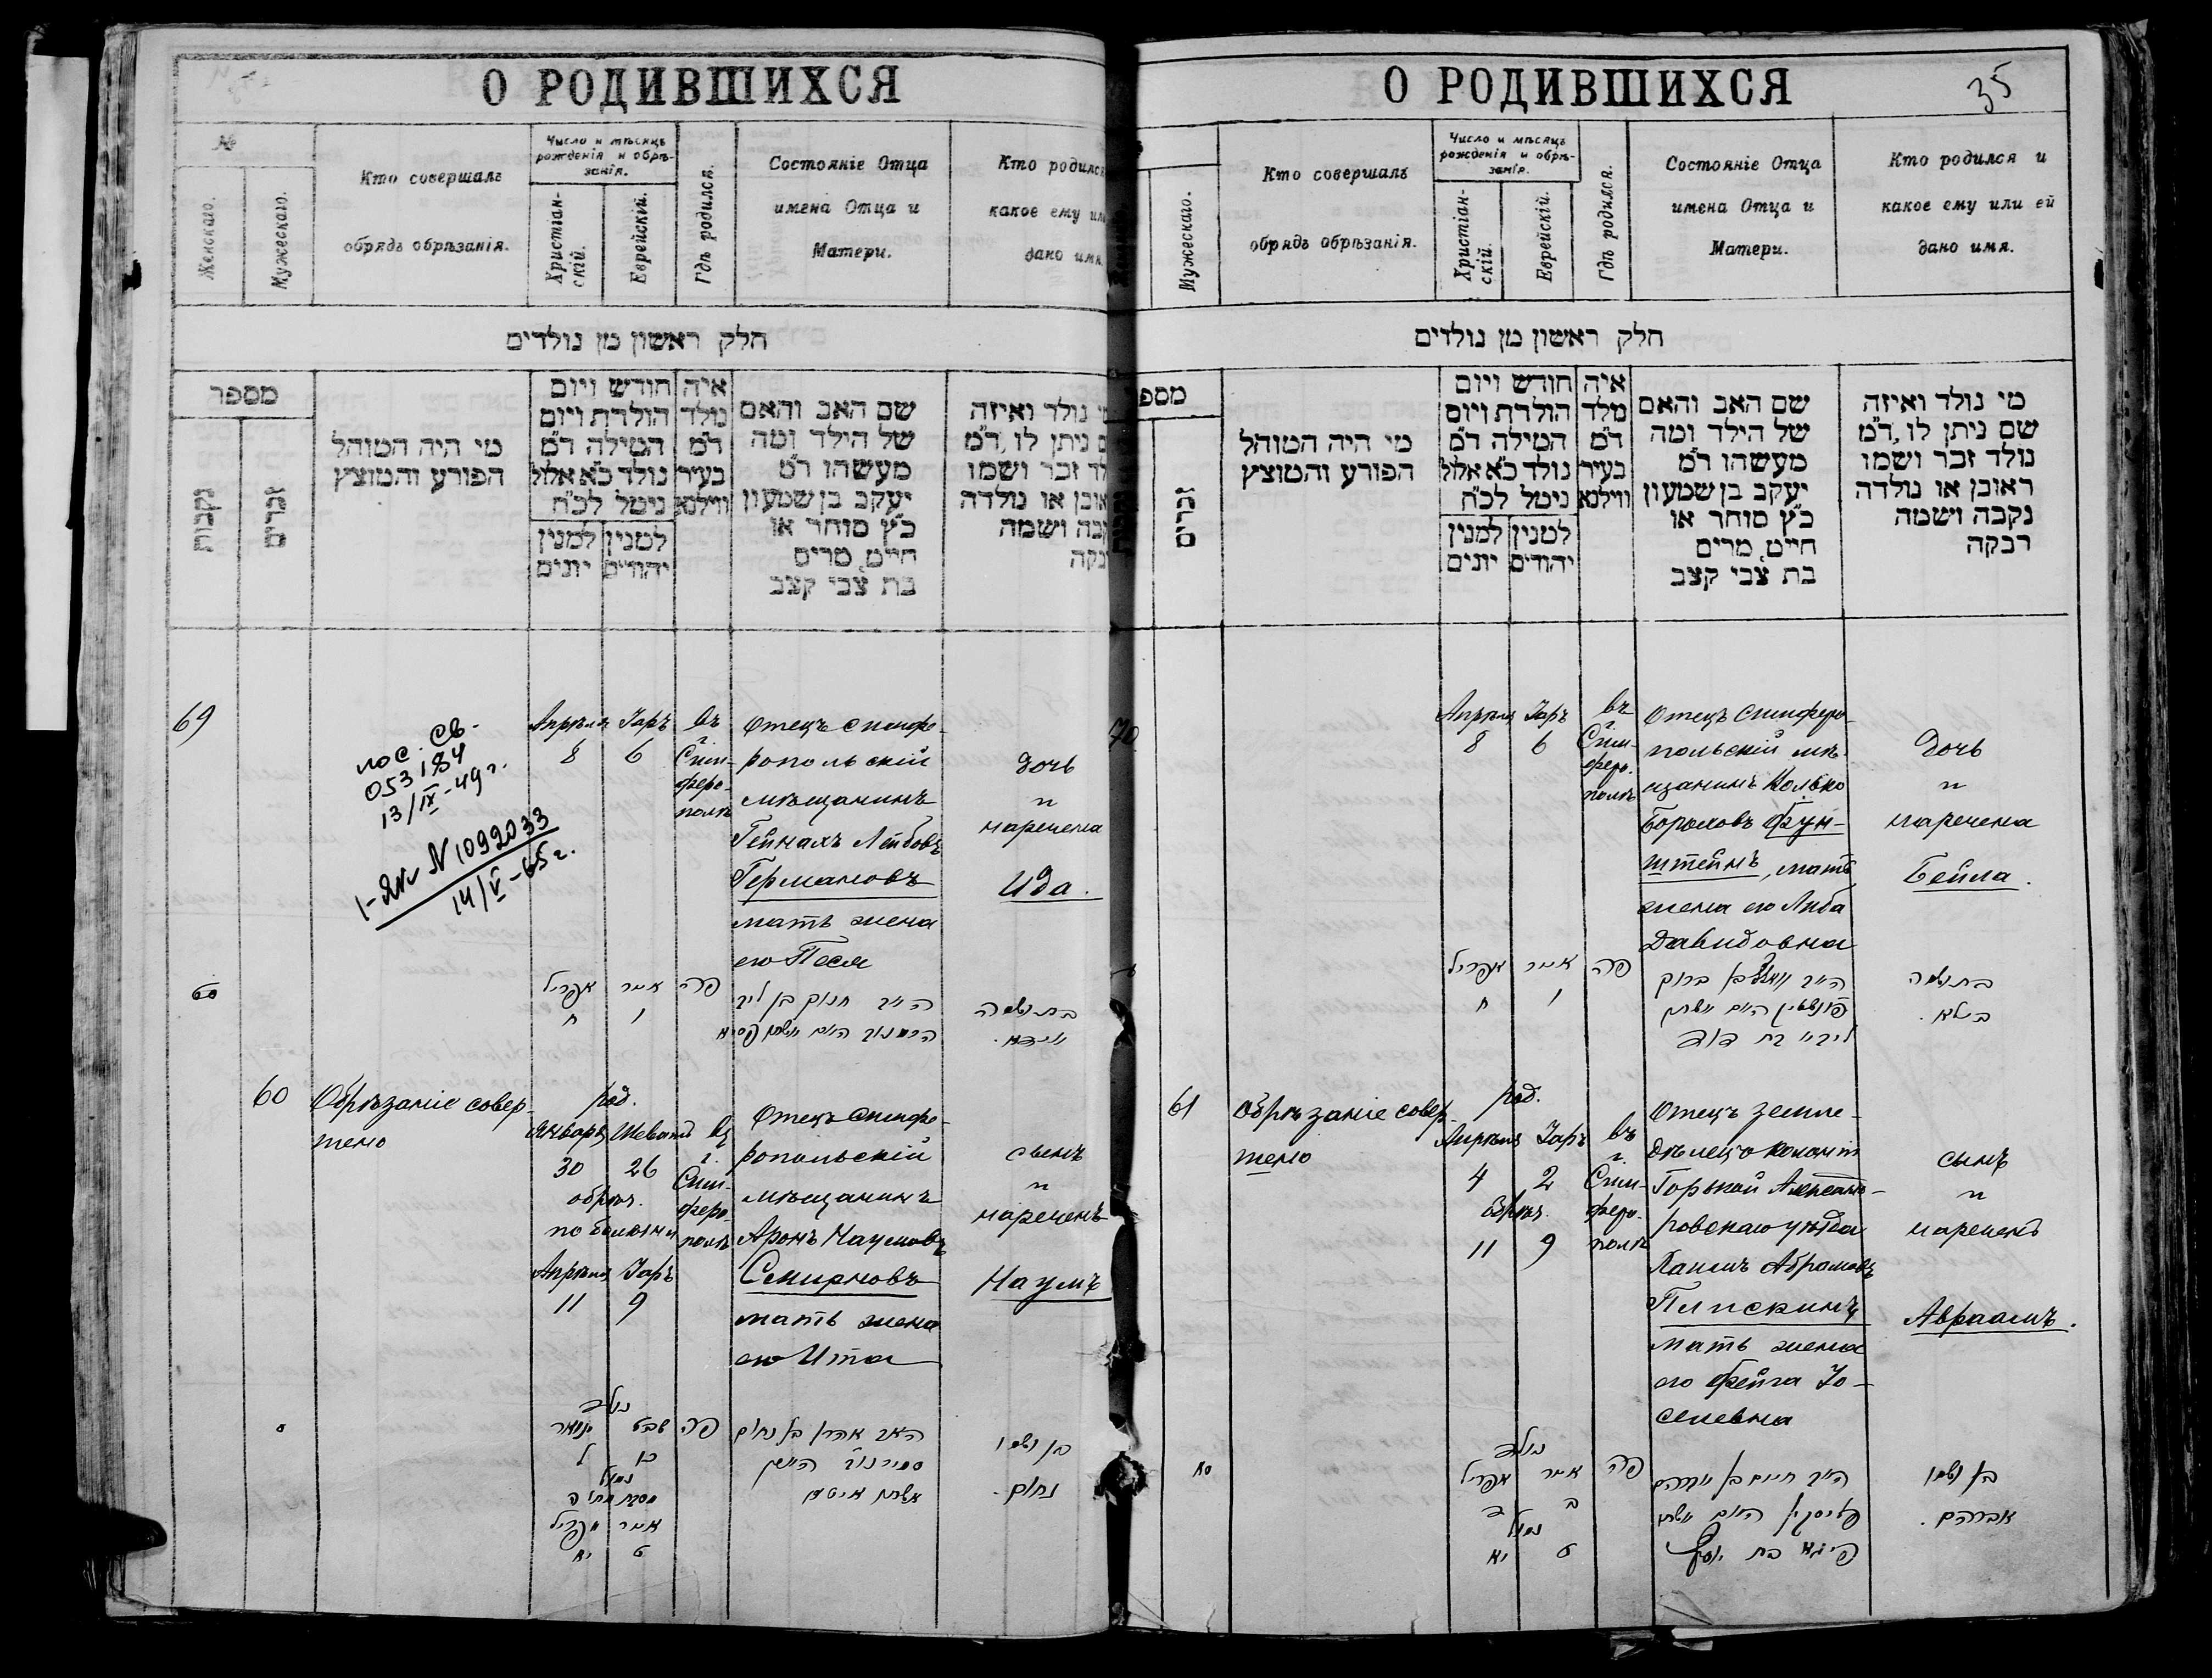 О РОДИВШИХСЯ
№
Женскаго.
Мужескаго.
Кто совершалъ
обрядъ обрѣзанія.
Число и мѣсяцъ
рожденія и обрѣ-
занія.
Христіан-
скій.
Еврейскій.
Гдѣ родился.
Состояніе Отца
имена Отца и
Матери.
Кто родился
какое ему или
дано имя.
חלק ראשון מן נולדים
מספר
נקבות
זכרים
מי היה המוהל
הפורע והמוצץ
חודש ויום
הולדת ויום
המילה ד״מ
נולד כ״א אלול
נימל לכ״ח
למנין יונים
למנין יהודים
איה
נולד
ד״מ
בעיר
ווילנא
שם האב והאם
של הילד ומה
מעשהו ד״מ
יעקב בן שמעון
כ״ץ סוחר או
חייט, מרים
בת צבי קצב
מי נולד ואיזה
שם ניתן לו, ד״מ
נולד זכר ושמו
ראובן או נולדה
נקבה ושמה
רבקה
69
пос. св.
053184
13/IX-49 г.
N 1092033
14/V-65 г.
Апрѣля
8
Іаръ
6
въ
г.
Сим-
феро-
полѣ
Отецъ симфе-
ропольскій
мѣщанинъ
Гейнахъ Лейбовъ
Германовъ
мать жена
его Песя
дочь
и
наречена
Ида.
אפריל
ח
אייר
ו
פה
60
Обрѣзаніе совер-
шено
род.
Января Шеватъ
30 26
обрѣз.
по болѣзни
Апрѣля Іаръ
11 9
въ
г.
Сим-
феро-
полѣ
Отецъ симфе-
ропольскій
мѣщанинъ
Аронъ Наумовъ
Смирновъ
мать жена
его Ита
сынъ
и
нареченъ
Наумъ
נולד
ינואר שבט
ל כו
נמול
אפריל אייר
יא ט
פה
האב אהרן בן נחום
סמירנוב
נחום.
О РОДИВШИХСЯ
35
Мужескаго.
Кто совершалъ
обрядъ обрѣзанія.
Число и мѣсяцъ
рожденія и обрѣ-
занія.
Христіан-
скій.
Еврейскій.
Гдѣ родился.
Состояніе Отца
имена Отца и
Матери.
Кто родился и
какое ему или ей
дано имя.
חלק ראשון מן נולדים
מספ
זכרים
מי היה המוהל
הפורע והמוצץ
חודש ויום
הולדת ויום
המילה ד״מ
נולד כ״א אלול
נימל לכ״ח
למנין יונים
למנין יהודים
איה
נולד
ד״מ
בעיר
ווילנא
שם האב והאם
של הילד ומה
מעשהו ד״מ
יעקב בן שמעון
כ״ץ סוחר או
חייט, מרים
בת צבי קצב
מי נולד ואיזה
שם ניתן לו, ד״מ
נולד זכר ושמו
ראובן או נולדה
נקבה ושמה
רבקה
70
Апрѣля
8
Іаръ
6
въ
г.
Сим-
феро-
полѣ
Отецъ симферо-
польскій мѣ-
щанинъ
Боруховъ Фун-
штейнъ, мать
жена его Либа
Давидовна
дочь
и
наречена
Бейла.
אפריל
ח
אייר
ו
פה
ביילא.
61
Обрѣзаніе совер-
шено
род.
Апрѣля Іаръ
4 2
Обрѣз.
11 9
въ
г.
Сим-
феро-
полѣ
Отецъ земле-
дѣлецъ колоніи
Горькой Александ-
ровскаго уѣзда
Хаимъ Абрамовъ
Пляскинъ
мать жена
его Фейга Іо-
селевна
сынъ
и
нареченъ
Авраамъ.
נולד
אפריל אייר
ד ב
נמול
יא ט
פה
אברהם.